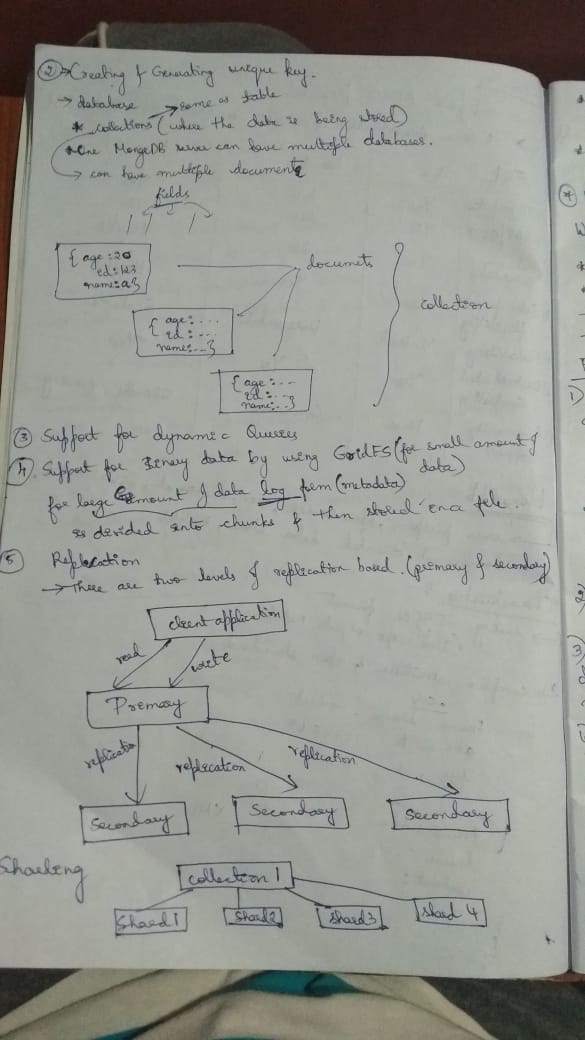 ② → Creating & Generating unique key.
→ database → same as table
* collections (where the data is being stored)
* One MongoDB server can have multiple databases.
→ can have multiple documents
fields
{ age : 20
id : 123
name : a }
documets
collection
{ age : ...
id : ...
name : ... }
{ age : ...
id : ...
name : ... }
③ Support for dynamic Queries
4. Support for Binary data by using GridFS (for small amount of data)
for large amount of data log form (metadata)
is divided into chunks & then stored in a file.
5 Replication
→ There are two levels of replication based. (primary & secondary)
client application
read write
Primary
replication replication replication
Secondary Secondary Secondary
Sharding
collection 1
Shard 1 Shard 2 Shard 3 shard 4